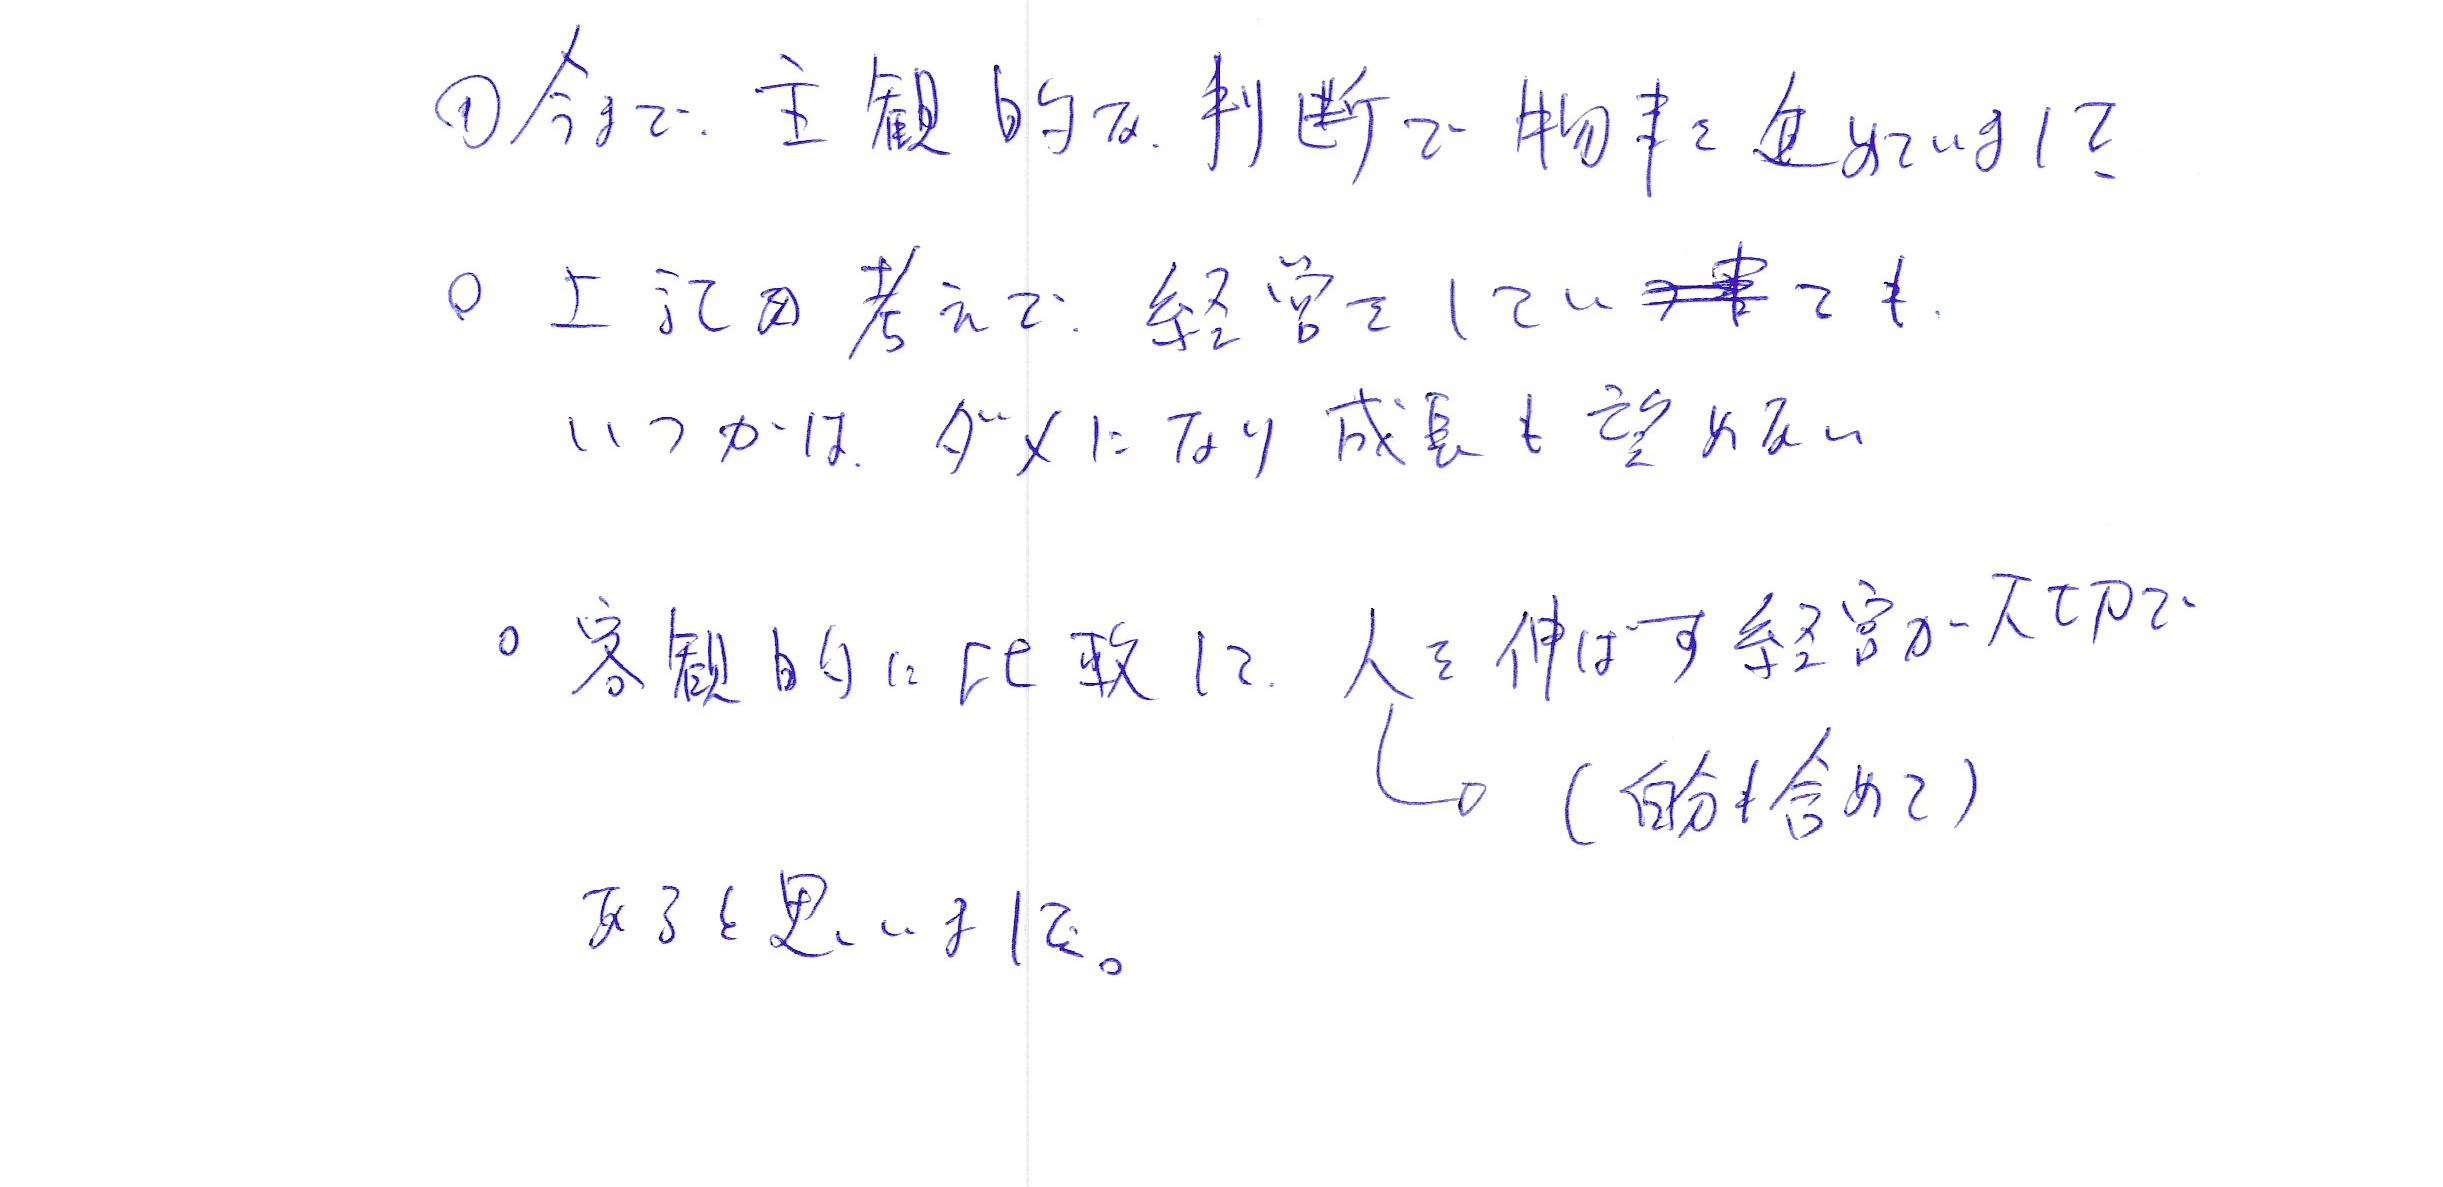 ①今まで、主観的な判断で物事を進めていました
○ 上記の考えで、経営をしていても、
いつかは、ダメになり成長も望めない
○ 客観的に比較して、人を伸ばす経営が大切で
(自分も含めて)
あると思いました。